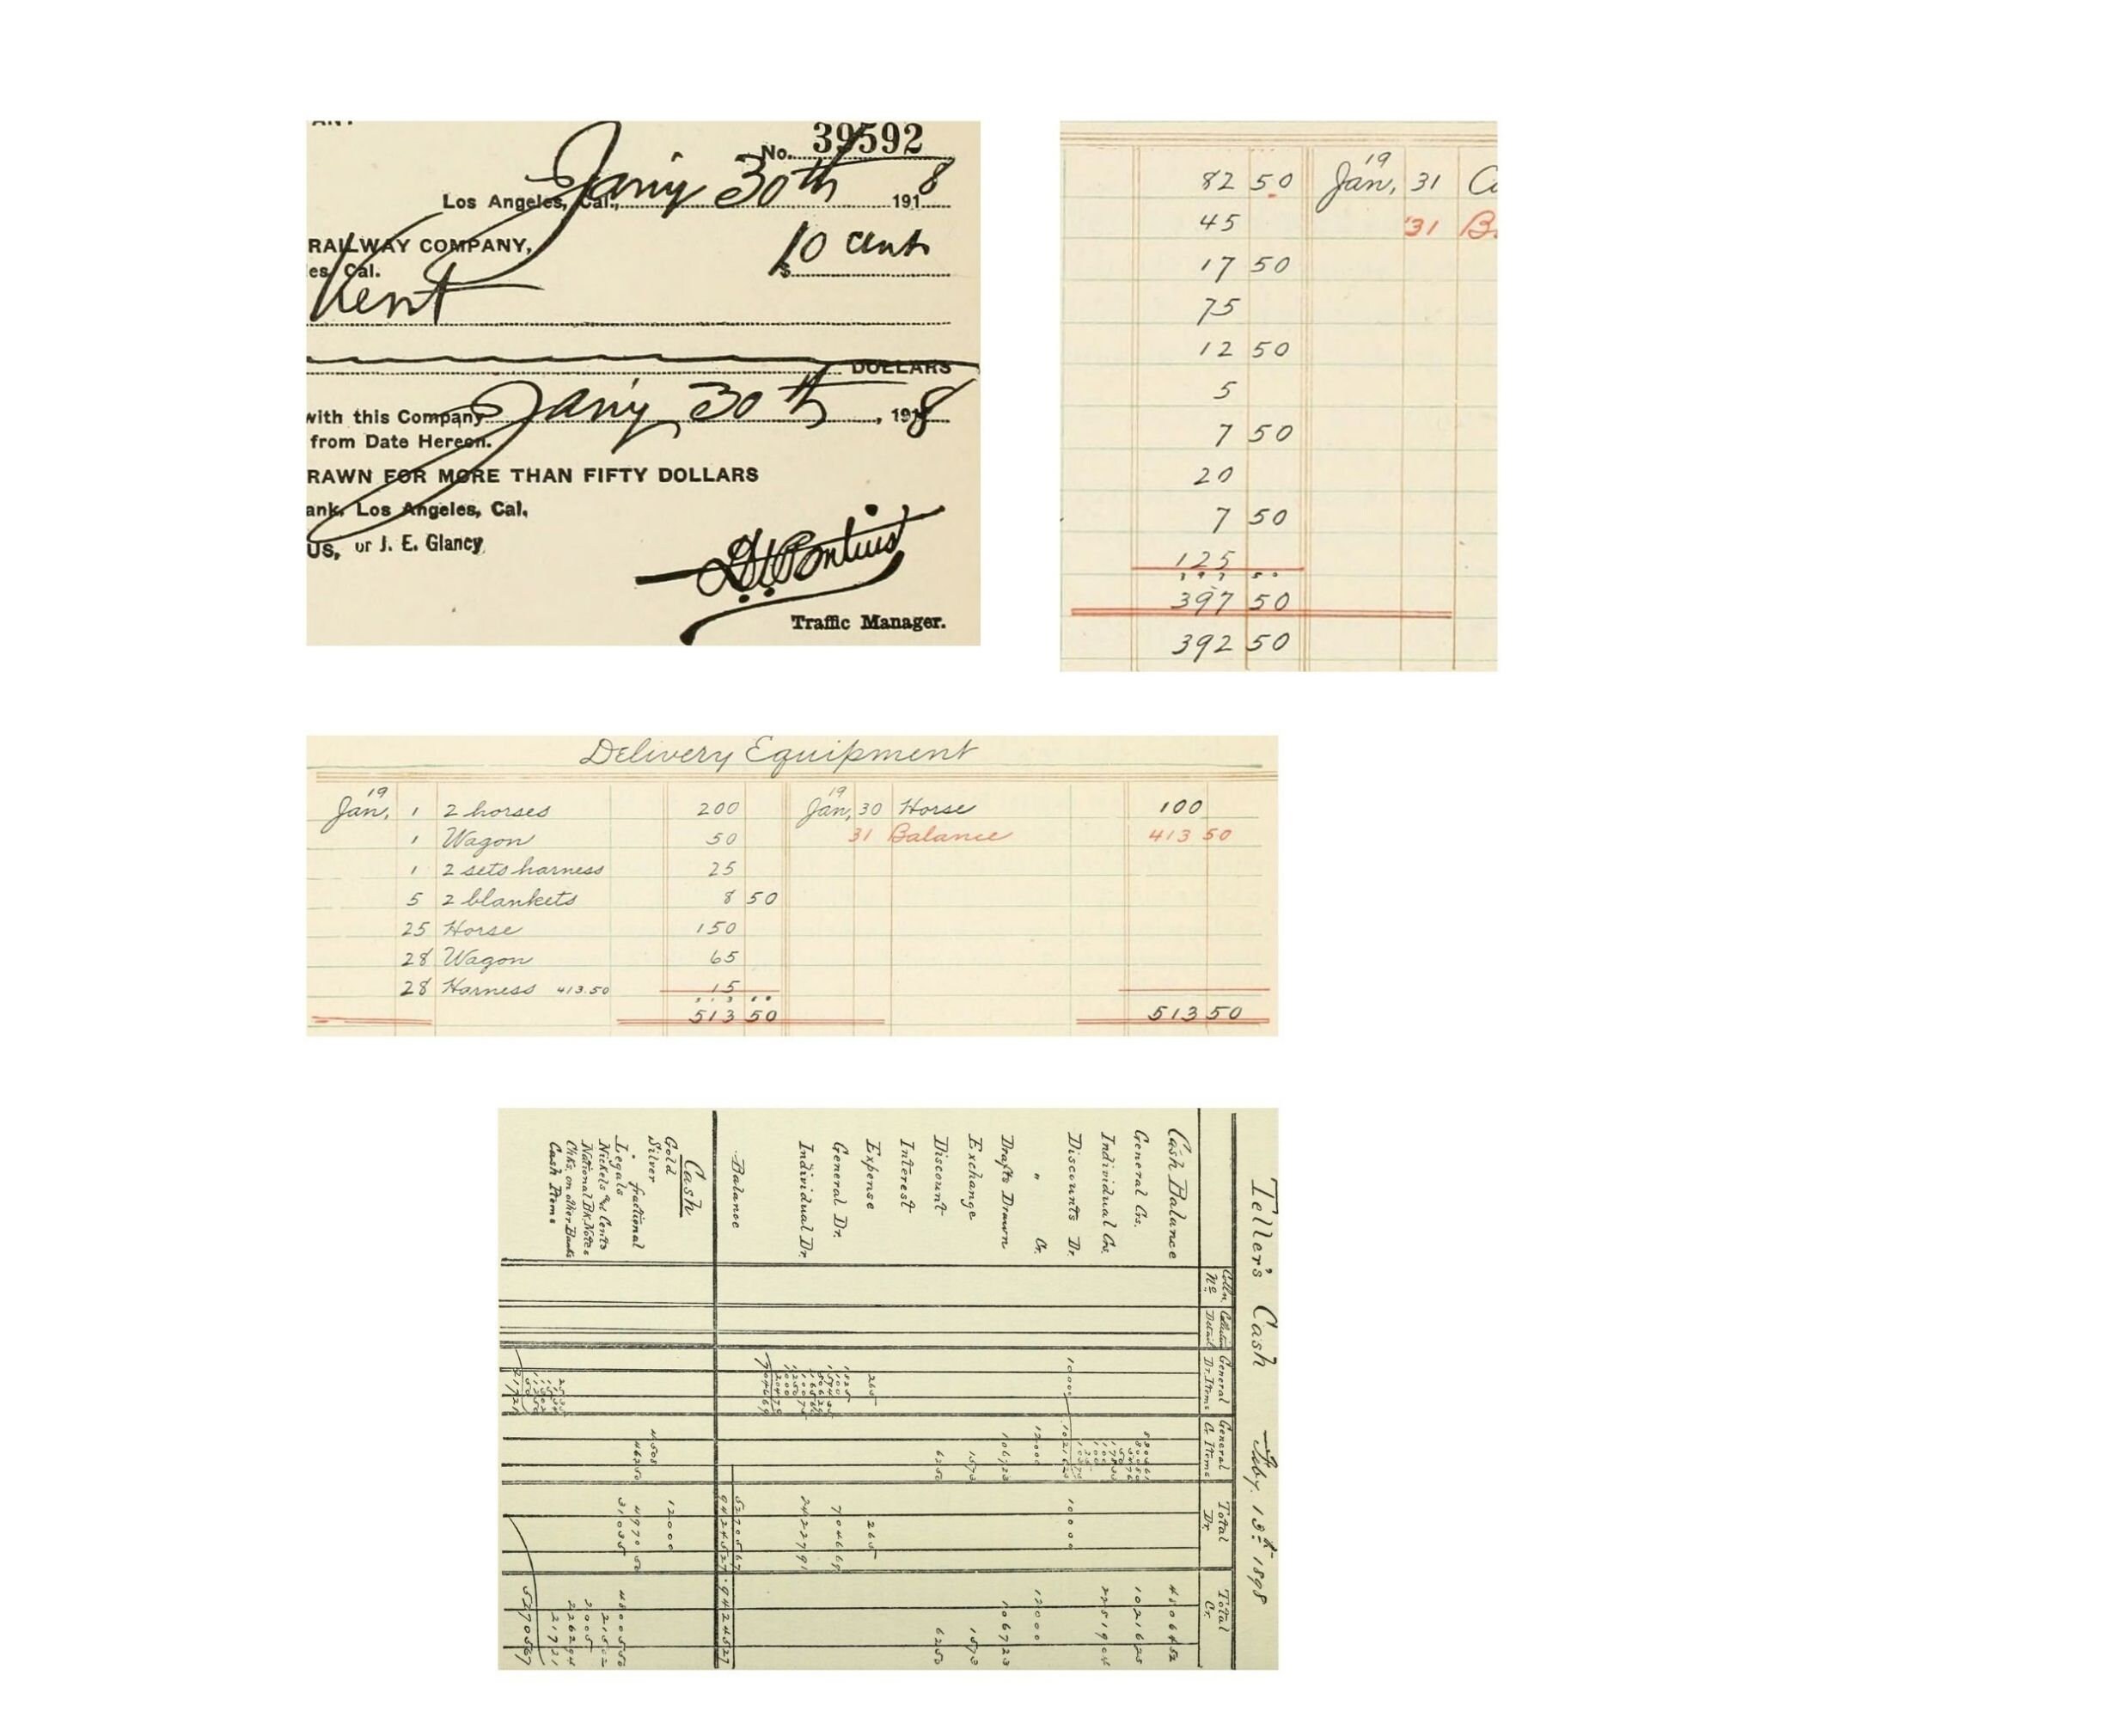 No. 39592
Los Angeles, Cal., Jan'y 30th 1918
RAILWAY COMPANY,
es, Cal.
$ 10 cents
Kent
DOLLARS
with this Company Jan'y 30th, 1918
from Date Hereon.
RAWN FOR MORE THAN FIFTY DOLLARS
ank, Los Angeles, Cal.
US, or J. E. Glancy
D. W. Pontius
Traffic Manager.
19
82 50 Jan, 31
45 31
17 50
75
12 50
5
7 50
20
7 50
125
397 50
397 50
392 50
Delivery Equipment
19 19
Jan, 1 2 horses 200 Jan, 30 Horse 100
1 Wagon 50 31 Balance 413 50
1 2 sets harness 25
5 2 blankets 8 50
25 Horse 150
28 Wagon 65
28 Harness 413.50 15
513 50 513 50
Teller's Cash Feby. 1898
Colln. No Collection Detail General Dr. Items General Cr Items Total Dr. Total Cr.
Cash Balance
General Crs.
Individual Crs.
Discounts Dr. 10000 10000
" Cr. 12000 12000
Drafts Drawn 106723 106723
Exchange 1573 1573
Discount 6250 6250
Interest
Expense 265 265
General Dr.
Individual Dr. 2422791
Balance
Cash
Gold 12000
Silver
" fractional
Legals
Nickels & Cents
National Bk. Notes
Chks. on other Banks
Cash Items 21721
5270567